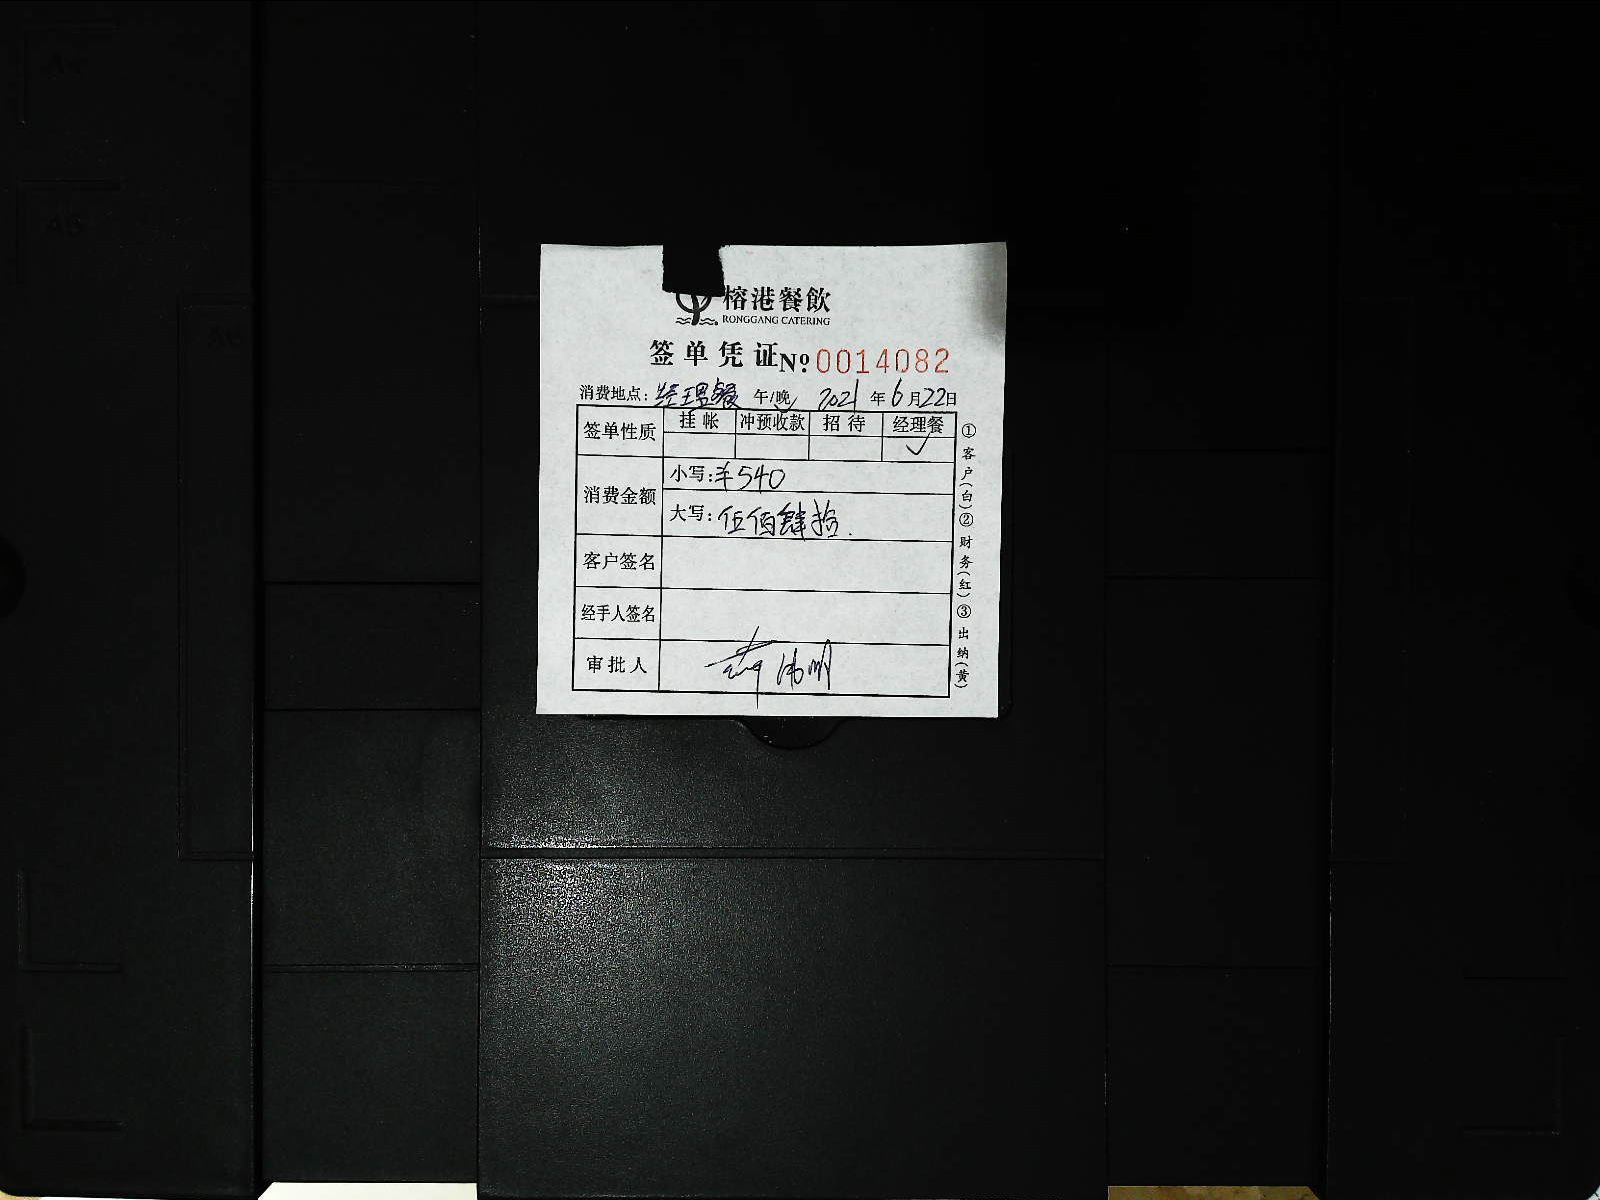 榕港餐飲
RONGGANG CATERING
签单凭证 № 0014082
消费地点: 经理餐 午/晚 2021 年 6 月 22 日
签单性质 挂帐 冲预收款 招待 经理餐
✓
消费金额 小写: ¥540
大写: 伍佰肆拾.
客户签名
经手人签名
审批人
①客户(白)②财务(红)③出纳(黄)
A4
A5
A6